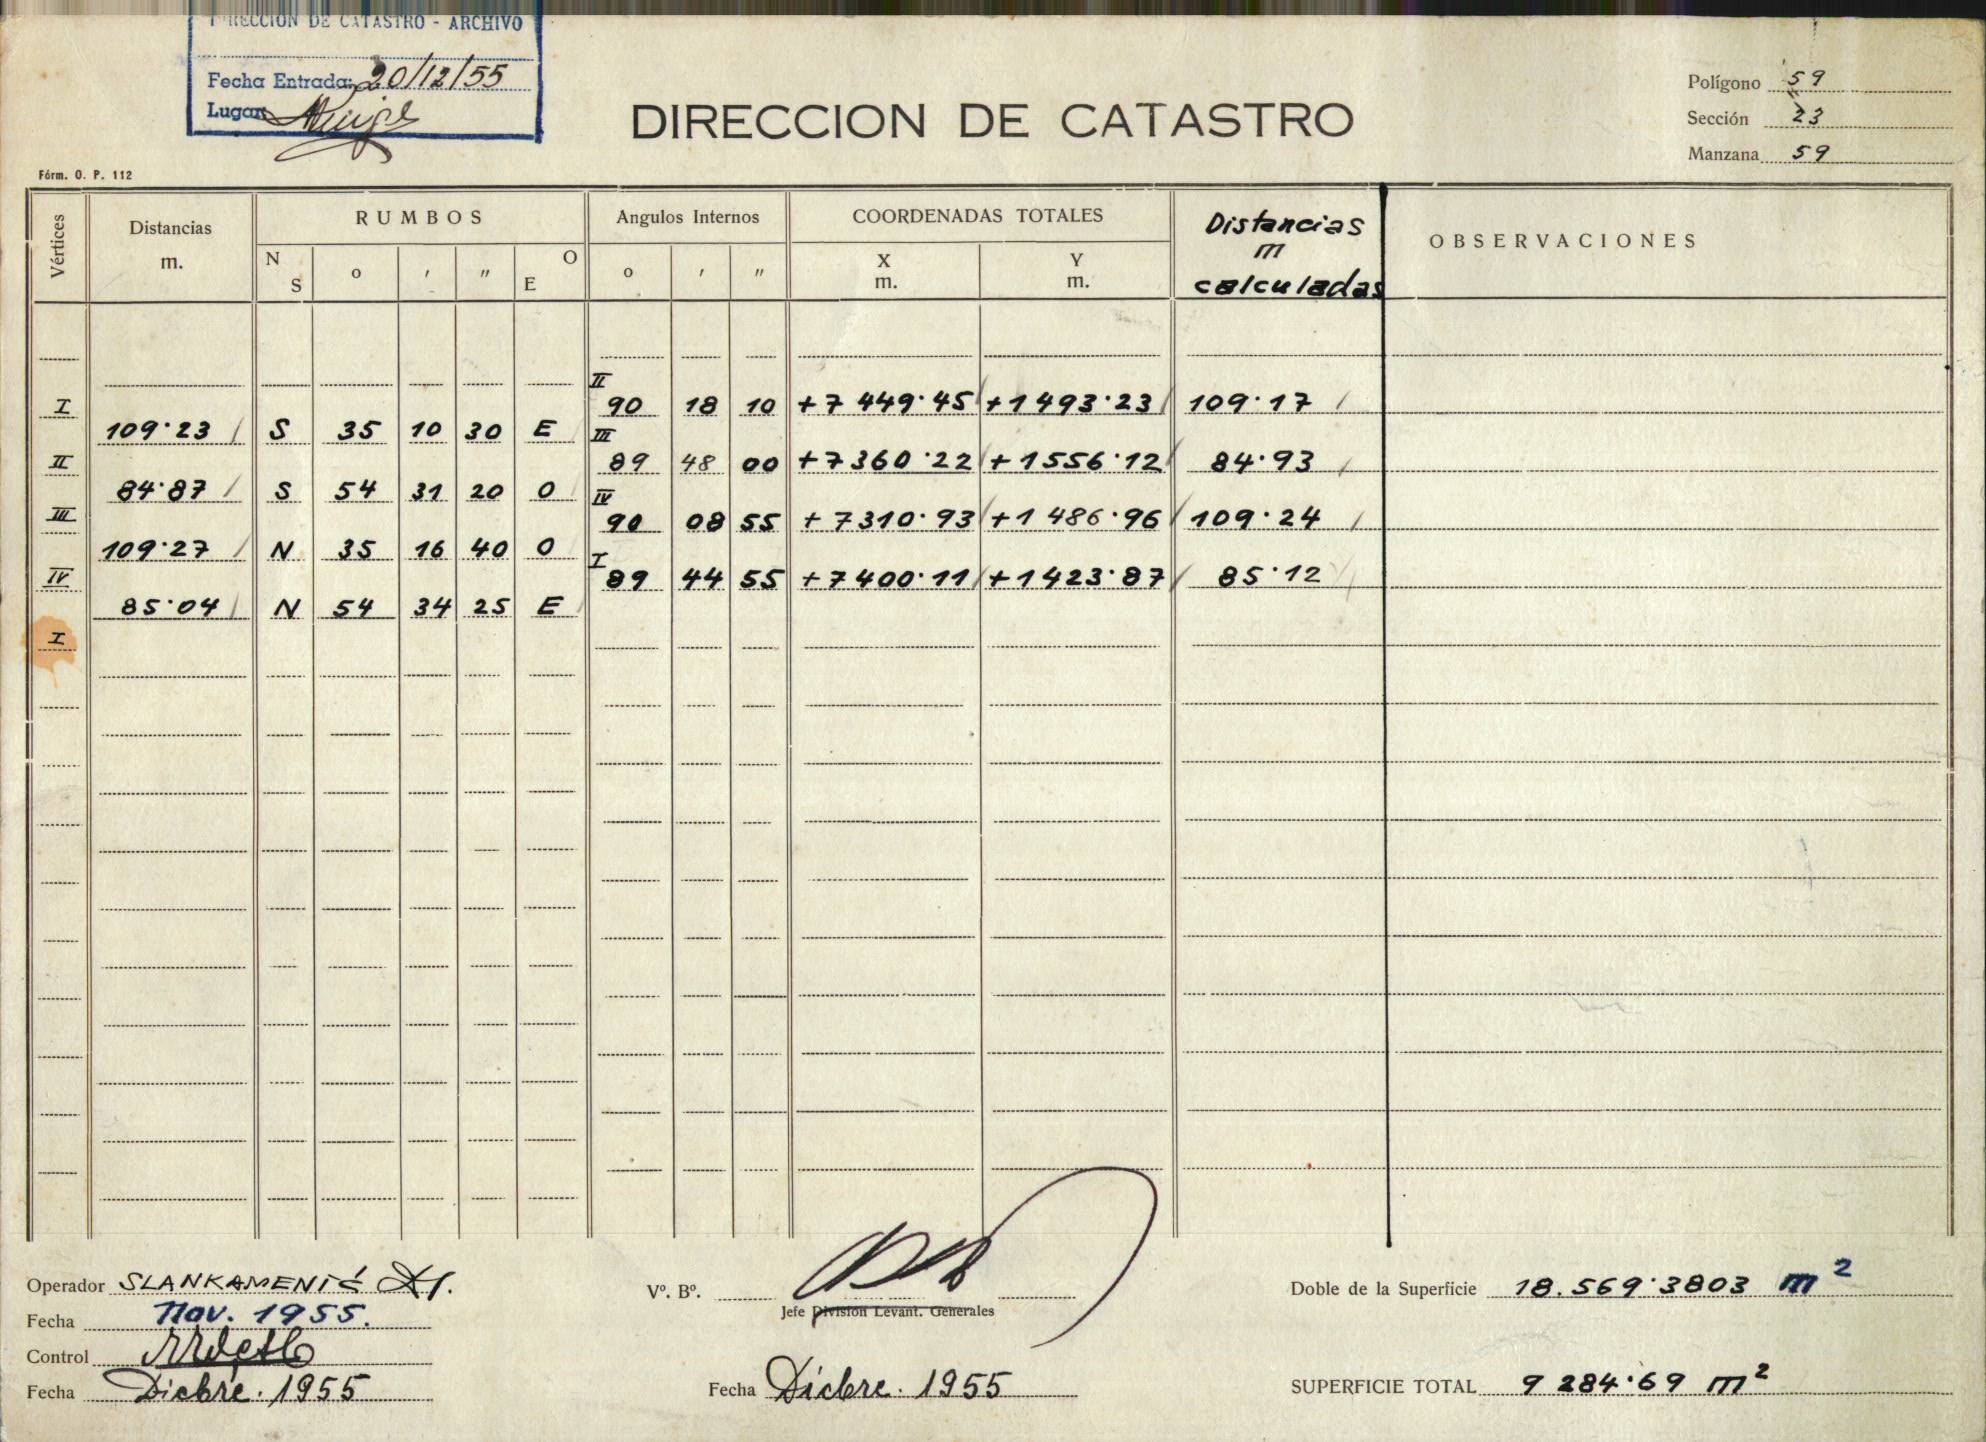 DIRECCION DE CATASTRO - ARCHIVO
Fecha Entrada: 20/12/55
Lugar
DIRECCION DE CATASTRO
Polígono 59
Sección 23
Manzana 59
Fórm. O. P. 112
Vértices Distancias m. RUMBOS Angulos Internos COORDENADAS TOTALES Distancias m calculadas OBSERVACIONES
N S o ′ ″ O E o ′ ″ X m. Y m.
II
I 90 18 10 +7 449.45 +1 493.23 109.17
109.23 S 35 10 30 E
III
II 89 48 00 +7 360.22 +1 556.12 84.93
84.87 S 54 31 20 O
IV
III 90 08 55 +7 310.93 +1 486.96 109.24
109.27 N 35 16 40 O
I
IV 89 44 55 +7 400.11 +1 423.87 85.12
85.04 N 54 34 25 E
I
Operador SLANKAMENIĆ
Fecha Nov. 1955.
Control
Fecha Dicbre. 1955
Vº. Bº.
Jefe Division Levant. Generales
Fecha Dicbre. 1955
Doble de la Superficie 18.569.3803 m²
SUPERFICIE TOTAL 9 284.69 m²